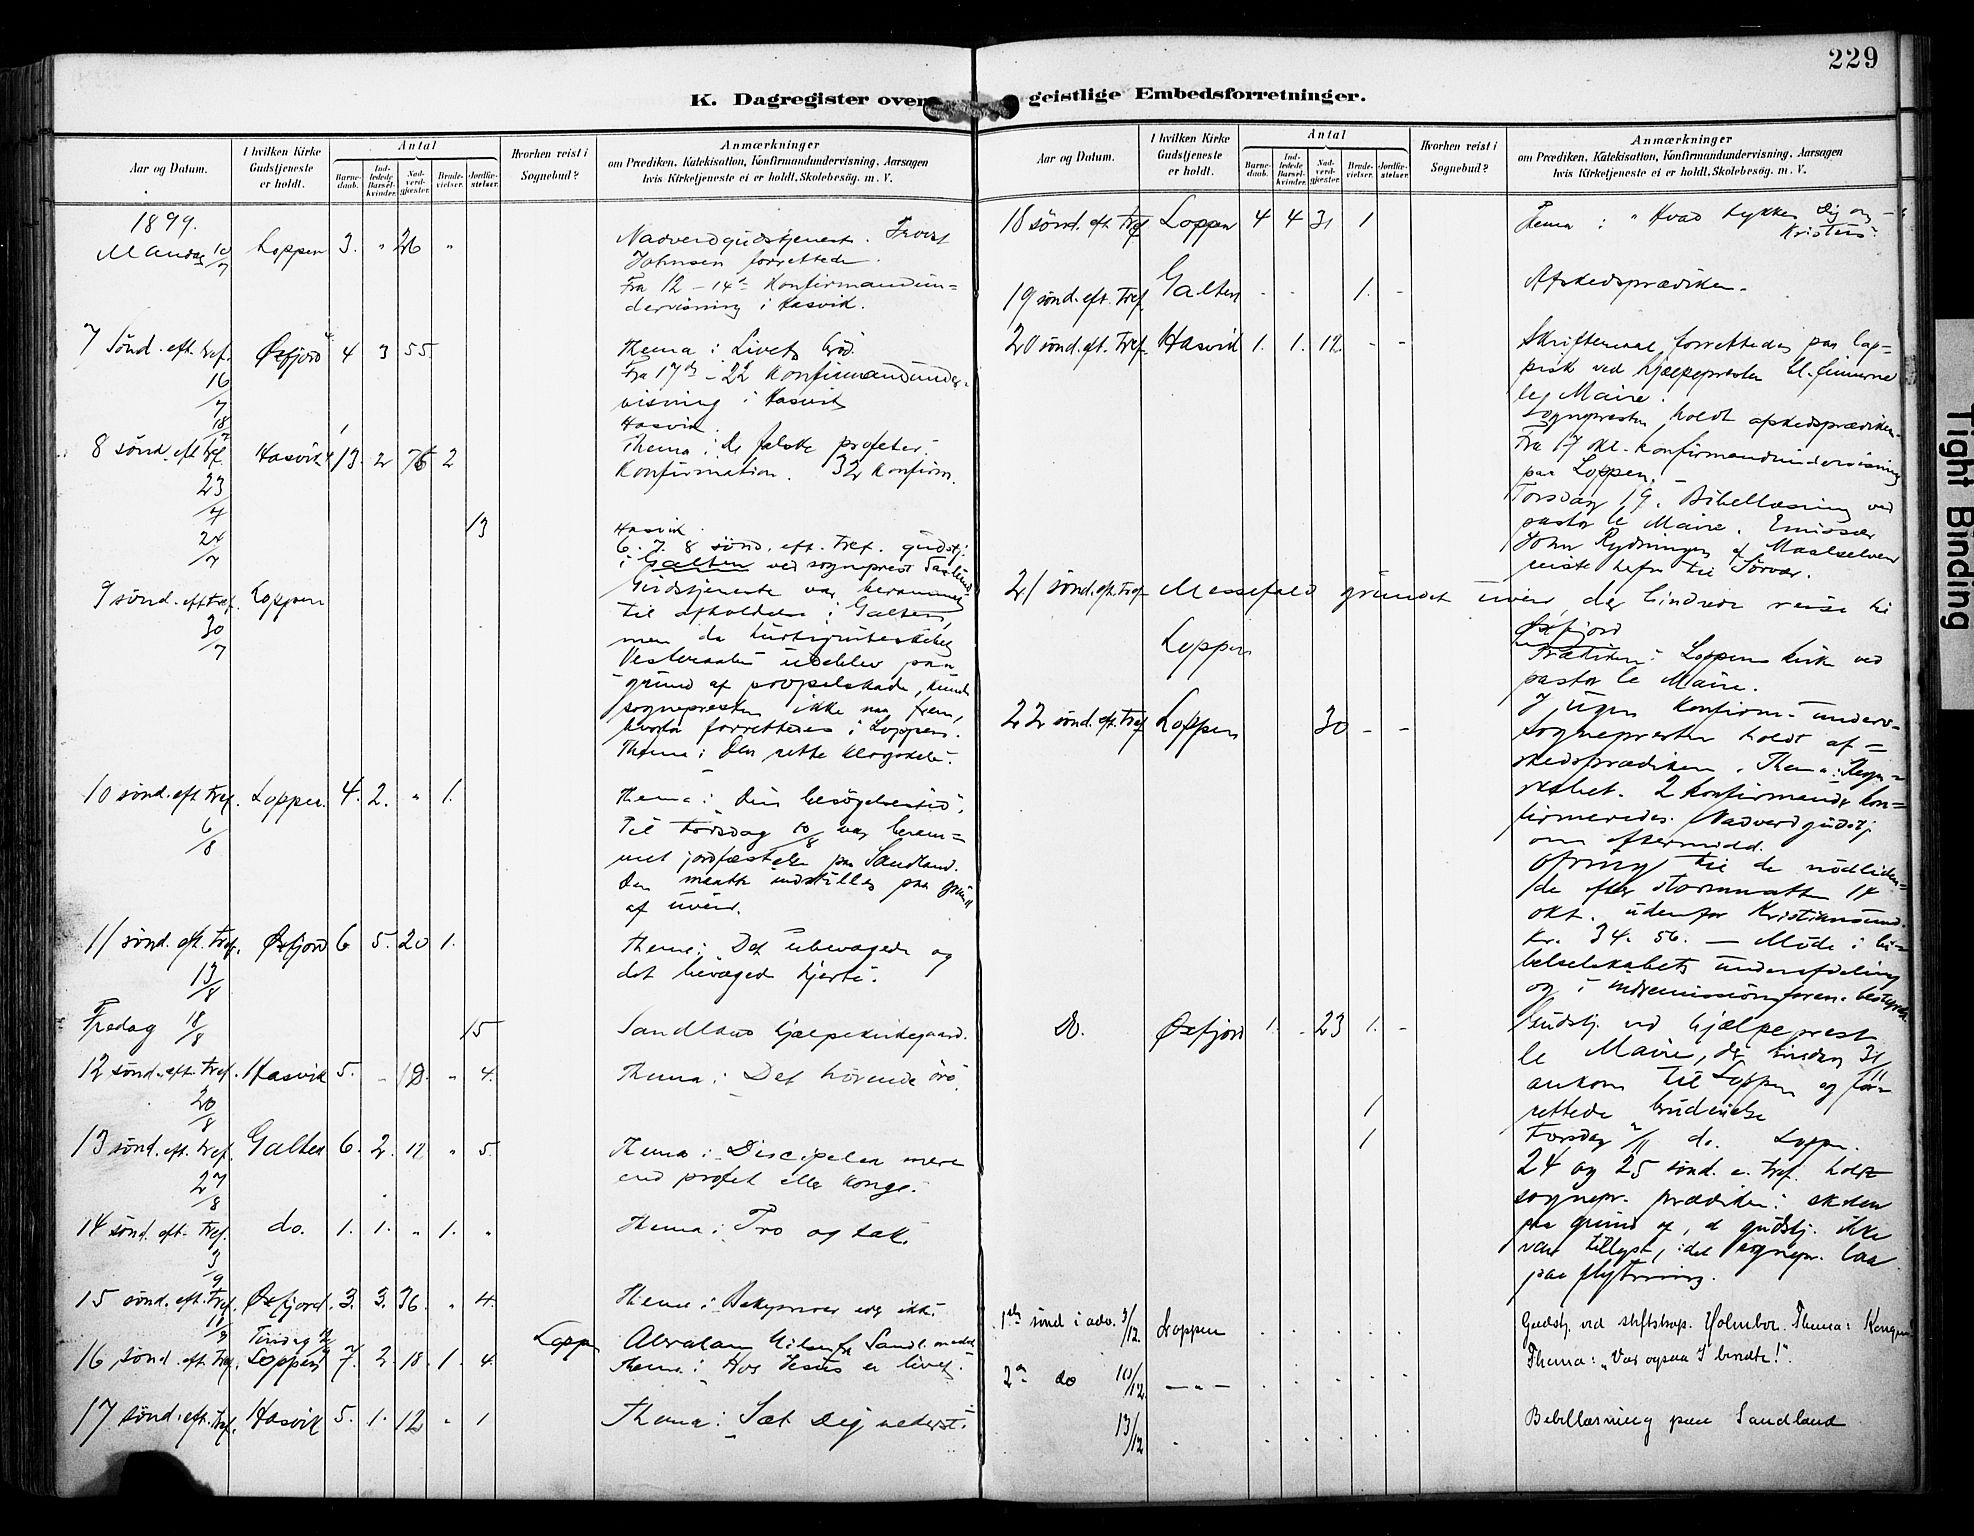 229
K. Dagregister over geistlige Embedsforretninger.
Aar og Datum.
I hvilken Kirke Gudstjeneste er holdt.
Antal
Barne-daab.
Ind-ledede Barsel-kvinder.
Nad-verd-gjæster.
Brude-vielser.
Jordfæ-stelser.
Hvorhen reist i Sognebud?
Anmærkninger
om Prædiken, Katekisation, Konfirmandundervisning, Aarsagen
hvis Kirketjeneste ei er holdt, Skolebesøg. m. V.
1899.
Mandag 10/7 Loppen 3. " 26 " Nadverdgudstjeneste. Provst
Johnsen forrettede.
Fra 12 – 14de Konfirmandun=
dervisning i Hasvik.
7 Sønd. eft. tref. Øxfjord 4 3 55 Thema: Livets brød.
16/7 Fra 17de – 22 Konfirmandunder-
visning i Hasvik
18/7 Hasvik.
8 sønd. eft tref Hasvik 13. 2 76 2 Thema: De falske profeter.
23/7 Konfirmation. 32 Konfirm.
24/7 13 Hasvik.
6. 7. 8 sønd. eft. tref. gudstj.
i Galten ved sogneprest
9 sønd. eft tref. Loppen Gudstjeneste var berammet
30/7 til afholdelse i Galten,
men da hurtigruteskibet
Vesteraalen udeblev paa
grund af propelskade, kunde
sognepresten ikke naa frem,
hvorfor forrettedes i Loppen.
Thema: Den rette klogskab.
10 sønd. eft tref. Loppen. 4. 2. " 1. Thema: Din besøgelsestid.
6/8 Til Torsdag 10/8 var beram=
met jordfæstelse paa Sandland.
Den maatte indstilles paa grund
af uveir.
11 sønd. eft. tref. Øxfjord 6 5. 20 1. Thema: Det ubevægede og
13/8 det bevæged hjerte.
Fredag 18/8 15 Sandlands hjælpekirkegaard.
12 sønd. eft. tref. Hasvik 5. " 18. " 4. Thema: Det hørende øre.
20/8
13 sønd. eft. tref. Galten 6. 2. 12 " 5. Thema: Discipelen mere
27/8 end profet eller konge.
14 sønd. eft. tref. do. 1. 1. " 1. " Thema: Tro og tak.
3/9
15 sønd. eft. tref. Øxfjord 3. 3. 36. " 4. Thema: Bekymrer eder ikke.
10/9 Tirsdag 12/9 Loppen Abraham Nilsen fra Sandl.
16 sønd. eft. tref. Loppen 7. 2 18. 1. 4. Thema: Hos Jesus er livet.
17 sønd. eft. tref. Hasvik 5. 1. 12 " 1 Thema: Sæt dig nederst.
Aar og Datum.
I hvilken Kirke Gudstjeneste er holdt.
Antal
Barne-daab.
Ind-ledede Barsel-kvinder.
Nad-verd-gjæster.
Brude-vielser.
Jordfæ-stelser.
Hvorhen reist i Sognebud?
Anmærkninger
om Prædiken, Katekisation, Konfirmandundervisning, Aarsagen
hvis Kirketjeneste ei er holdt, Skolebesøg. m. V.
18 sønd. eft tref Loppen 4 4 31 1 Thema: "Hvad tykkes dig om
Kristus?"
19 sønd. eft. tref. Galten - - 1. - Afskedsprædiken.
20 sønd. eft. tref. Hasvik 1. 1. 12. - - Skriftemaal forrettedes paa lap=
pisk ved hjælpepresten til finnerne
le Maire.
Sognepresten holdt afskedsprædiken.
Fra 17 okt. Konfirmandundervisning
paa Loppen.
Torsdag 19. Bibellæsning ved
pastor le Maire. Emissær
John Rydningen af Maalselven
reiste herfra til Sørvær.
21 sønd. eft. tref Messefald grundet uveir, der hindrede reise til
Øxfjord
Loppen Prædiken i Loppens kirke ved
pastor le Maire.
I ugen Konfirm.-underv.
22 sønd. eft. tref Loppen 30 - - Sognepresten holdt af=
skedsprædiken. Thema: Regn=
skabet. 2 Konfirmander kon=
firmeredes. Nadverdgudstj.
om eftermidd.
Ofring til de nødliden=
de efter stormnatten 14
okt. udenfor Kristiansund.
Kr. 34. 56. — Møde i bi=
belselskabets underafdeling
og i indremissionsforen. bestyrelse
Do. Øxfjord 1. - 23 1. - Gudstj. ved hjælpeprest
le Maire, der tirsdag 31/
ankom til Loppen og for=
1 rettede brudevielse
1 Torsdag 2/11 do. Loppen.
24 og 25 sønd. e. tref. holdt
sognepr. prædiken i skolen
paa grund af, at gudstj. ikke
var tillyst, idet sognepr. laa
paa flytning.
1ste sønd i adv. 3/12 Loppen . . . . . Gudstj. ved stiftskap. Holmboe. Thema:
2den do 10/12 — " — . . . . . Thema: "Vær ogsaa I beredte!".
13/12 . . . . . . Bibellæsning paa Sandland
Tight Binding